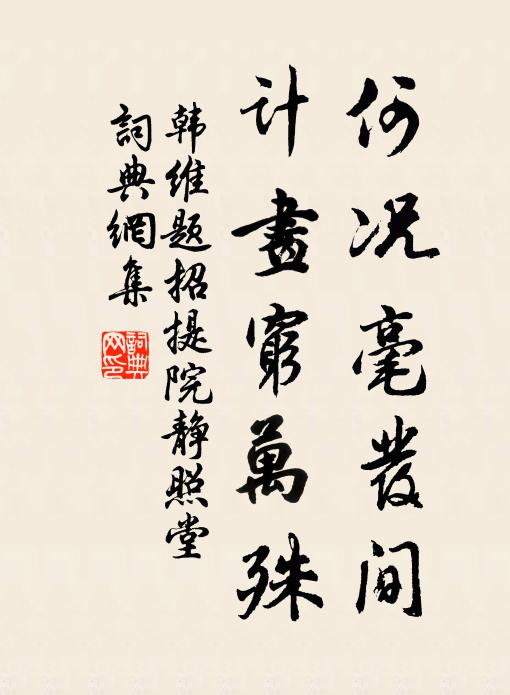 何况毫發间
计畫窮萬殊
韩维题招提院静照堂
詞典網集
詞典网印